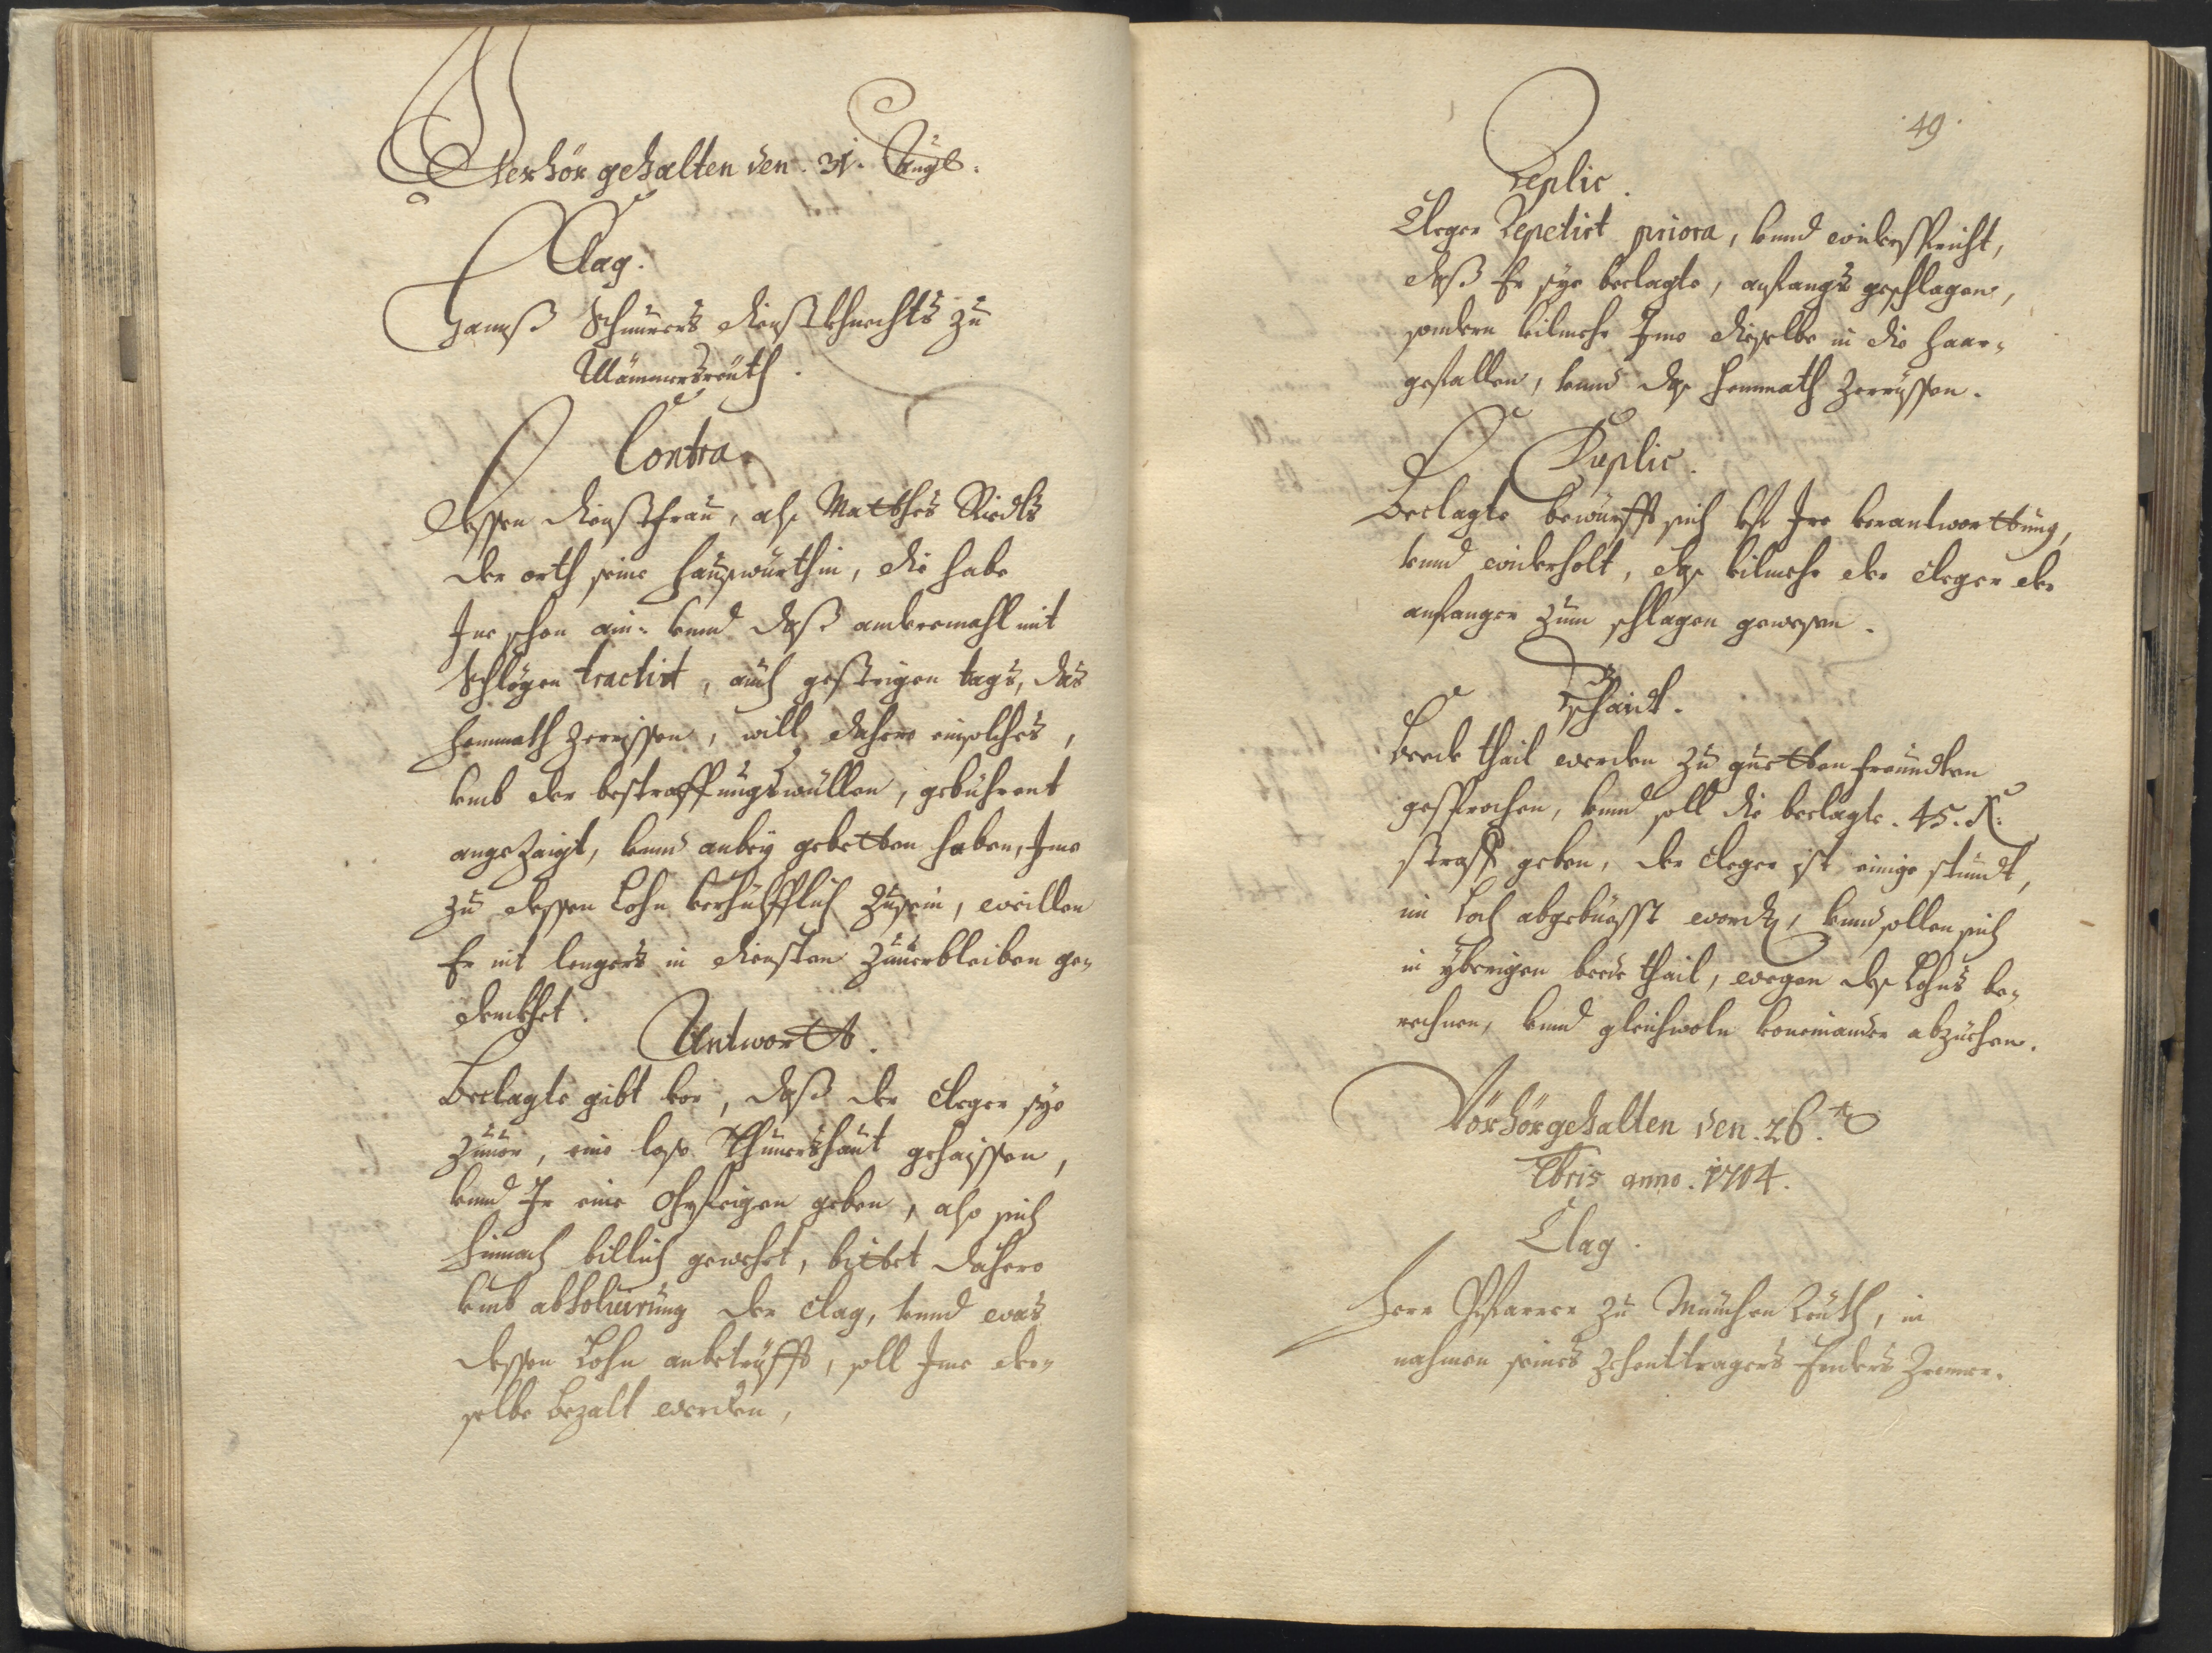 Verhör gehalten den. 31. Augt:
Clag.
Hannß Schnurers dienstkhnechts zu
Wämmersreuth.
Contra
dessen dienstfrau, als Matthes Riedls
der orth seine haußwürthin, die habe
Ine schon ain- vnnd daß anderemahl mit
Schlögen tractirt, auch gestrigen tags, das
hemmath zerrissen, will dahero ein solches,
vmb der bestraffungs wüllen, gebührent
angezaigt, vnnd anbey gebetten haben, Ime
zu dessen Lohn verhülfflich zusein, weillen
Er nit lengers in diensten zuuerbleiben ge-
denckhet.
Antwortt.
Beclagte gibt vor, daß der Cleger sye
zuuor, eine lose Schinershaut gehaissen,
vnnd Ir eine ohrfeigen geben, also sich
hinnach billich gewehrt, bittet dahero
vmb absoluirung der Clag, vnnd was
dessen Lohn anbetrüfft, soll Ime der-
selbe bezalt werden,
49.
Replic.
Cleger Repetirt priora, vnnd widerspricht,
daß Er sye beclagte, anfangs geschlagen,
sondern vilmehr Ime dieselbe in die haar-
gefallen, vnnd das hemmath zerrissen.
Duplic.
Beclagte bewürfft sich vf Ire verantworttung,
vnnd widerholt, das vilmehr der Cleger der
anfanger zum schlagen gewesen.
Bschaidt.
Beede thail werden zu guetten freundten
gesprochen, vnnd soll die beclagte. 45. x:
straff geben, der Cleger ist einige stundt,
im Loch abgebüesst worden, vnnd sollen sich
in ÿbrigen beede thail, wegen des Lohns be-
rechnen, vnnd gleichwoln voneinander abzüehen.
Vörhör gehalten den. 26.
7bris anno. 1704.
Clag.
Herr Pfarrer zu München Reuth, in
nahmen seines zehenttragers Enders Zremer.